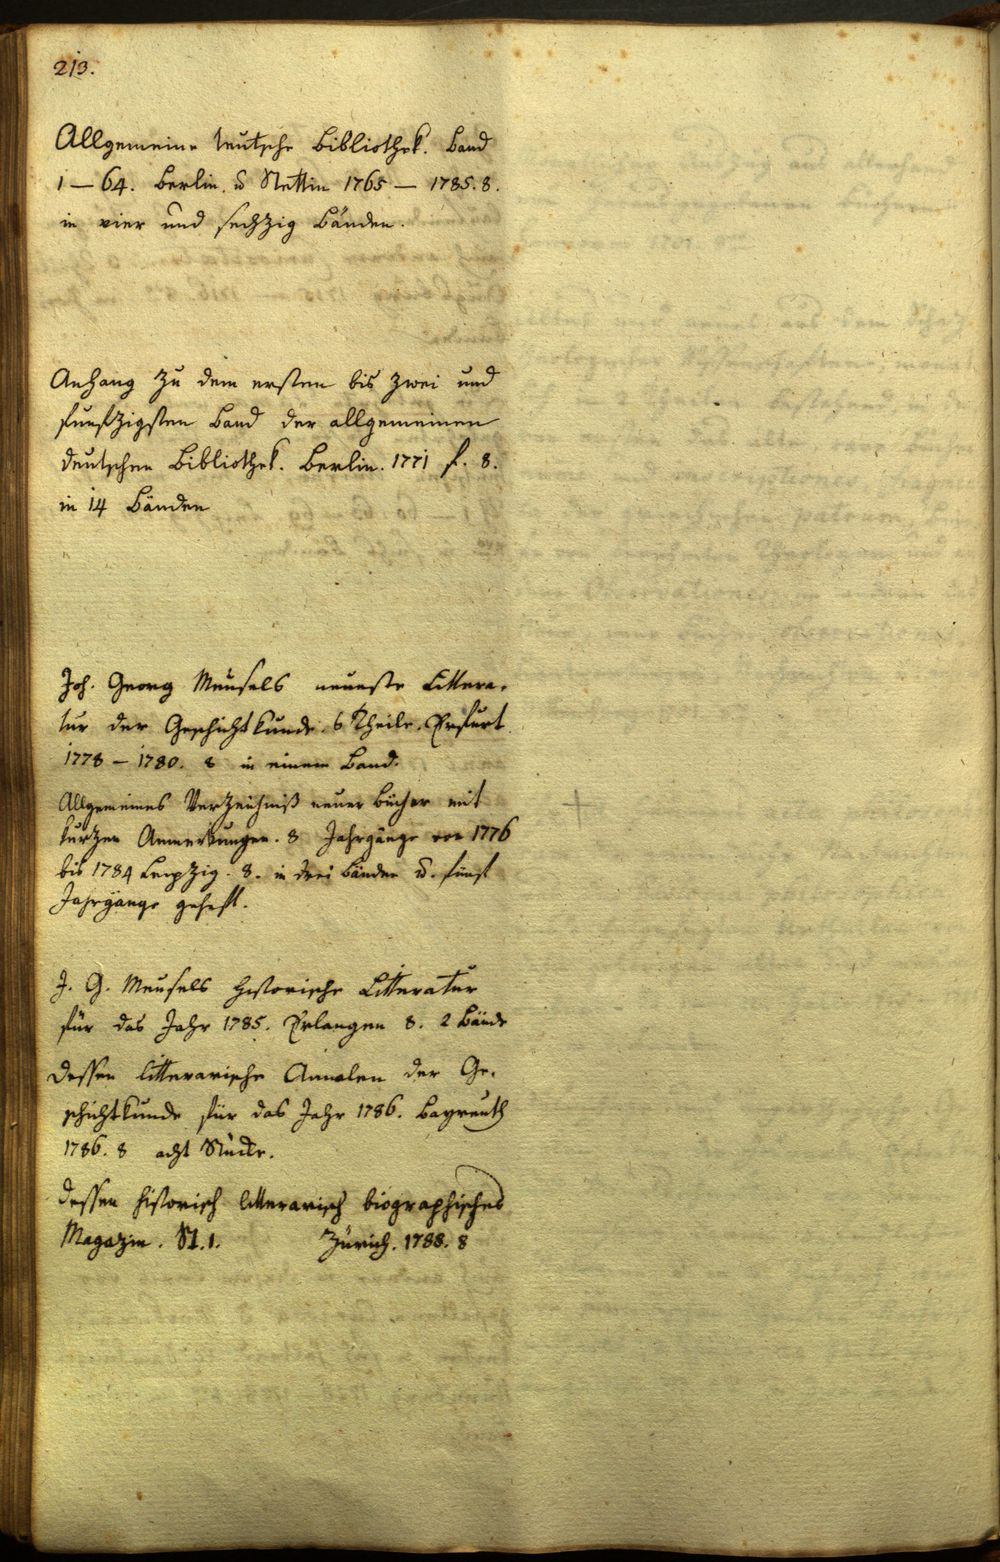 213.
Allgemeine teutsche Bibliothek. Band
1 — 64. Berlin. u Stettin 1765 — 1785. 8.
in vier und sechzig Bänden.
Anhang zu dem ersten bis zwei und
funfzigsten Band der allgemeinen
deutschen Bibliothek. Berlin. 1771 f. 8.
in 14 Bänden
Joh. Georg Meusels neueste Littera-
tur der Geschichtkunde. 6 Theile. Erfurt
1778 — 1780. 8 in einem Band.
Allgemeines Verzeichniß neuer Bücher mit
kurtzen Anmerkungen. 8 Jahrgänge von 1776
bis 1784 Leipzig. 8. in drei Bänden u. fünf
Jahrgänge geheft.
J. G. Meusels historische Litteratur
für das Jahr 1785. Erlangen 8. 2 Bände
Dessen litterarische Annalen der Ge-
schichtkunde für das Jahr 1786. Bayreuth
1786. 8 acht Stücke.
Dessen historisch litterarisch biographisches
Magazin. St. 1. Zürich. 1788. 8